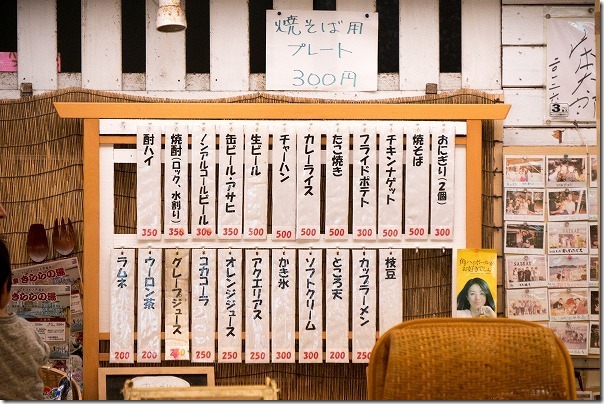 焼そば用
プレート
300円
おにぎり(2個) 300
焼そば 500
チキンナゲット 500
フライドポテト 300
たこ焼き 500
カレーライス 500
チャーハン 500
生ビール 500
缶ビール・アサヒ 350
ノンアルコールビール 300
焼酎(ロック、水割り) 350
酎ハイ 350
枝豆
カップラーメン 250
ところ天 200
ソフトクリーム 300
かき氷 300
アクエリアス 250
オレンジジュース 250
コカコーラ 250
グレープジュース
ウーロン茶 200
ラムネ 200